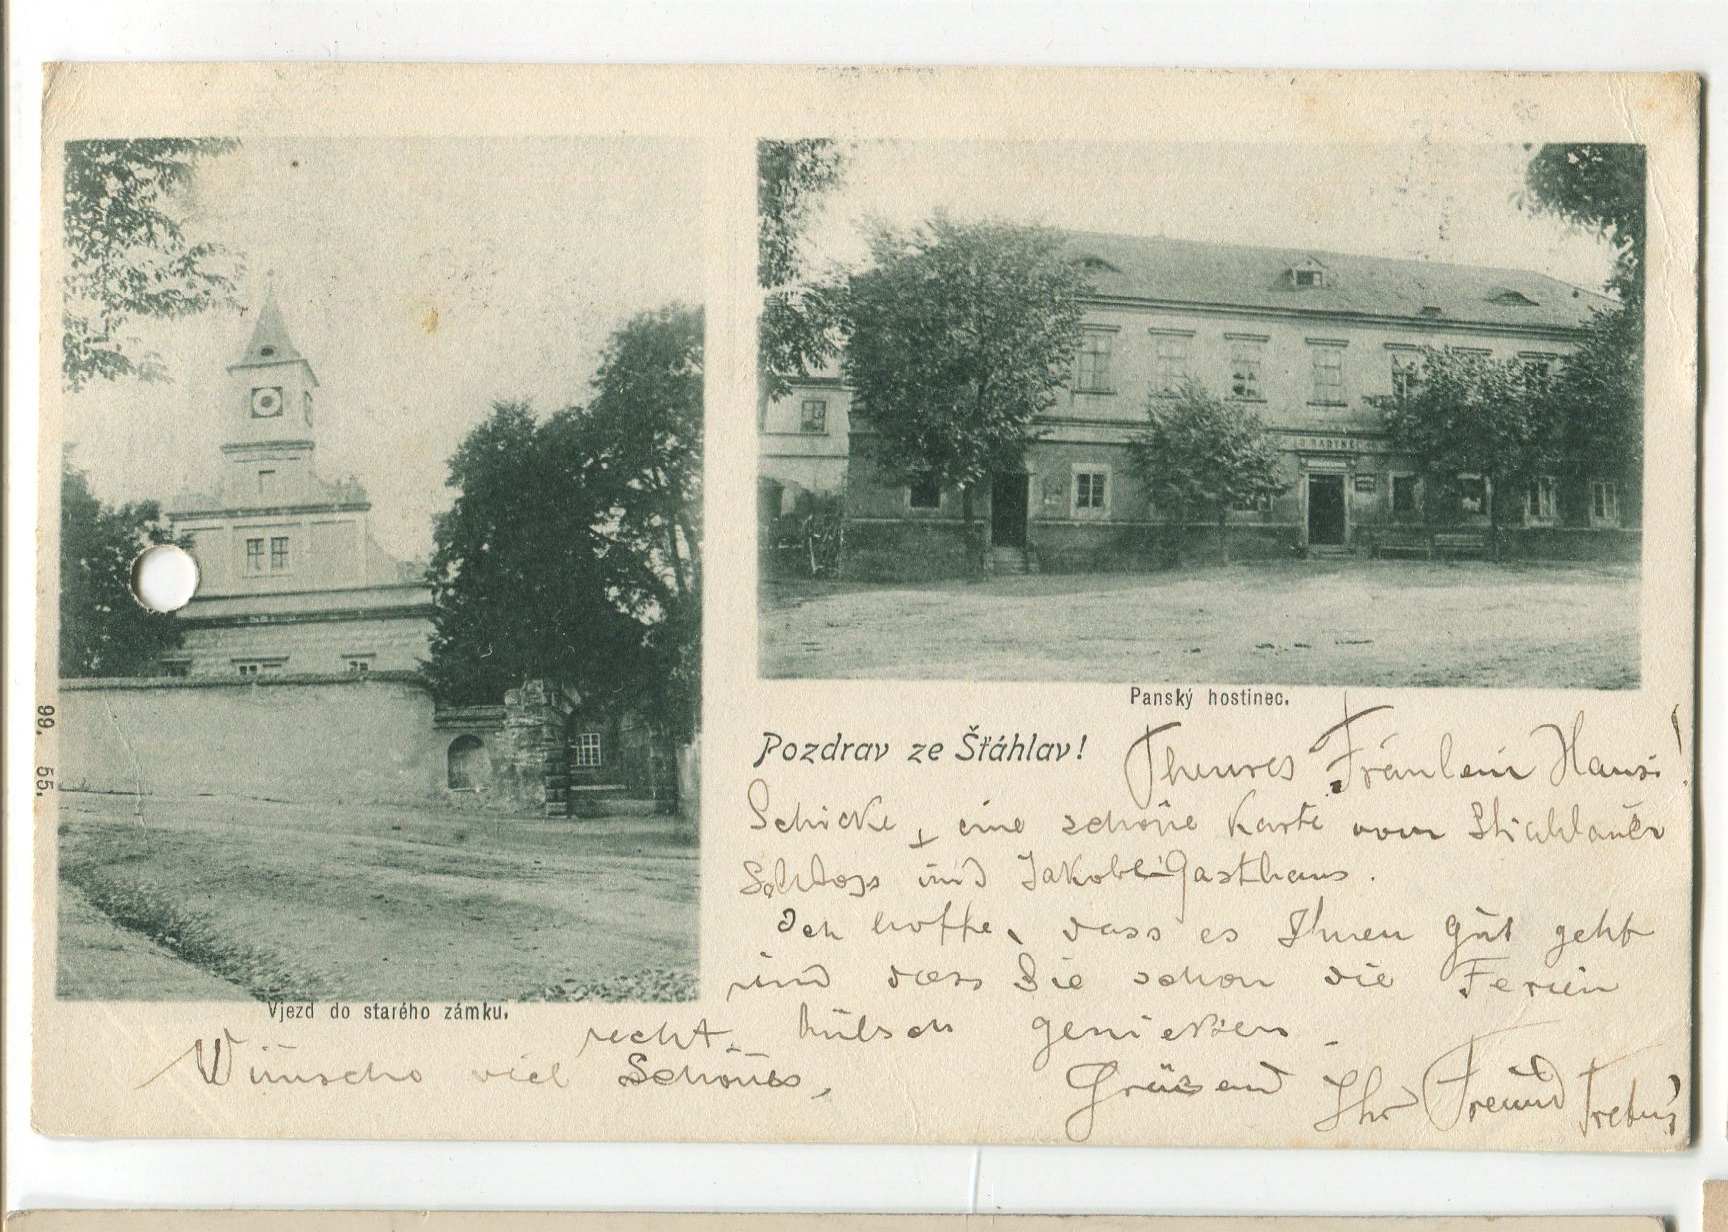 Vjezd do starého zámku.
99. 55.
Panský hostinec.
Pozdrav ze Šťáhlav!
Theures Fräulein Hansi!
Schicke eine schöne Karte vom Stiahlauer
Schloss und Gasthaus.
Ich hoffe, dass es Ihnen gut geht
und dass Sie schon die Ferien
recht hübsch genießen.
Wünsche viel Schönes,
Grüssend Ihr Freund